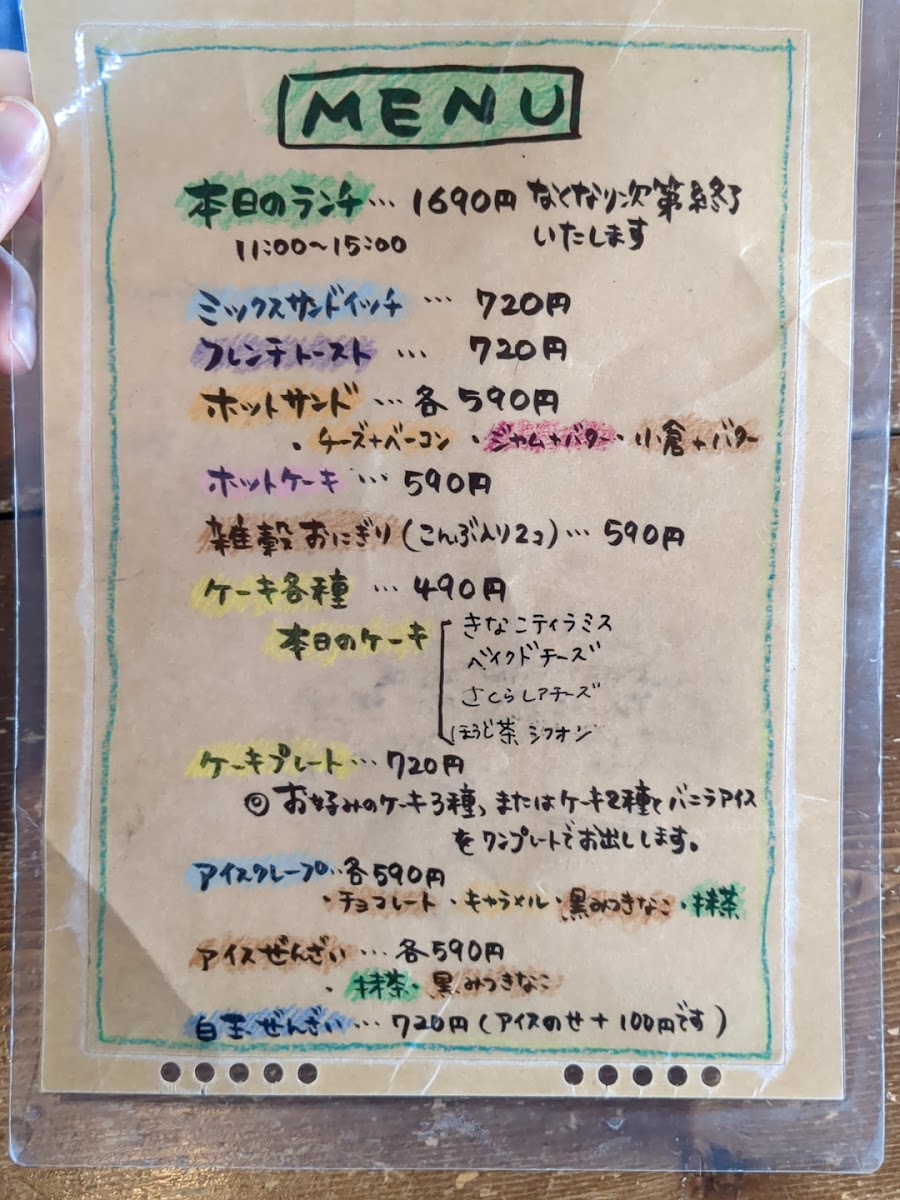 MENU
本日のランチ… 1690円 なくなり次第終了
11:00〜15:00 いたします
ミックスサンドイッチ … 720円
フレンチトースト … 720円
ホットサンド … 各590円
・チーズ+ベーコン ・ジャム+バター・小倉+バター
ホットケーキ … 590円
雑穀おにぎり(こんぶ入り2コ)… 590円
ケーキ各種 … 490円
本日のケーキ きなこティラミス
ベイクドチーズ
さくらレアチーズ
ほうじ茶シフォン
ケーキプレート… 720円
◎お好みのケーキ3種、またはケーキ2種とバニラアイス
をワンプレートでお出しします。
アイスクレープ…各590円
・チョコレート ・キャラメル・黒みつきなこ・抹茶
アイスぜんざい … 各590円
・抹茶・黒みつきなこ
白玉ぜんざい… 720円(アイスのせ+100円です)